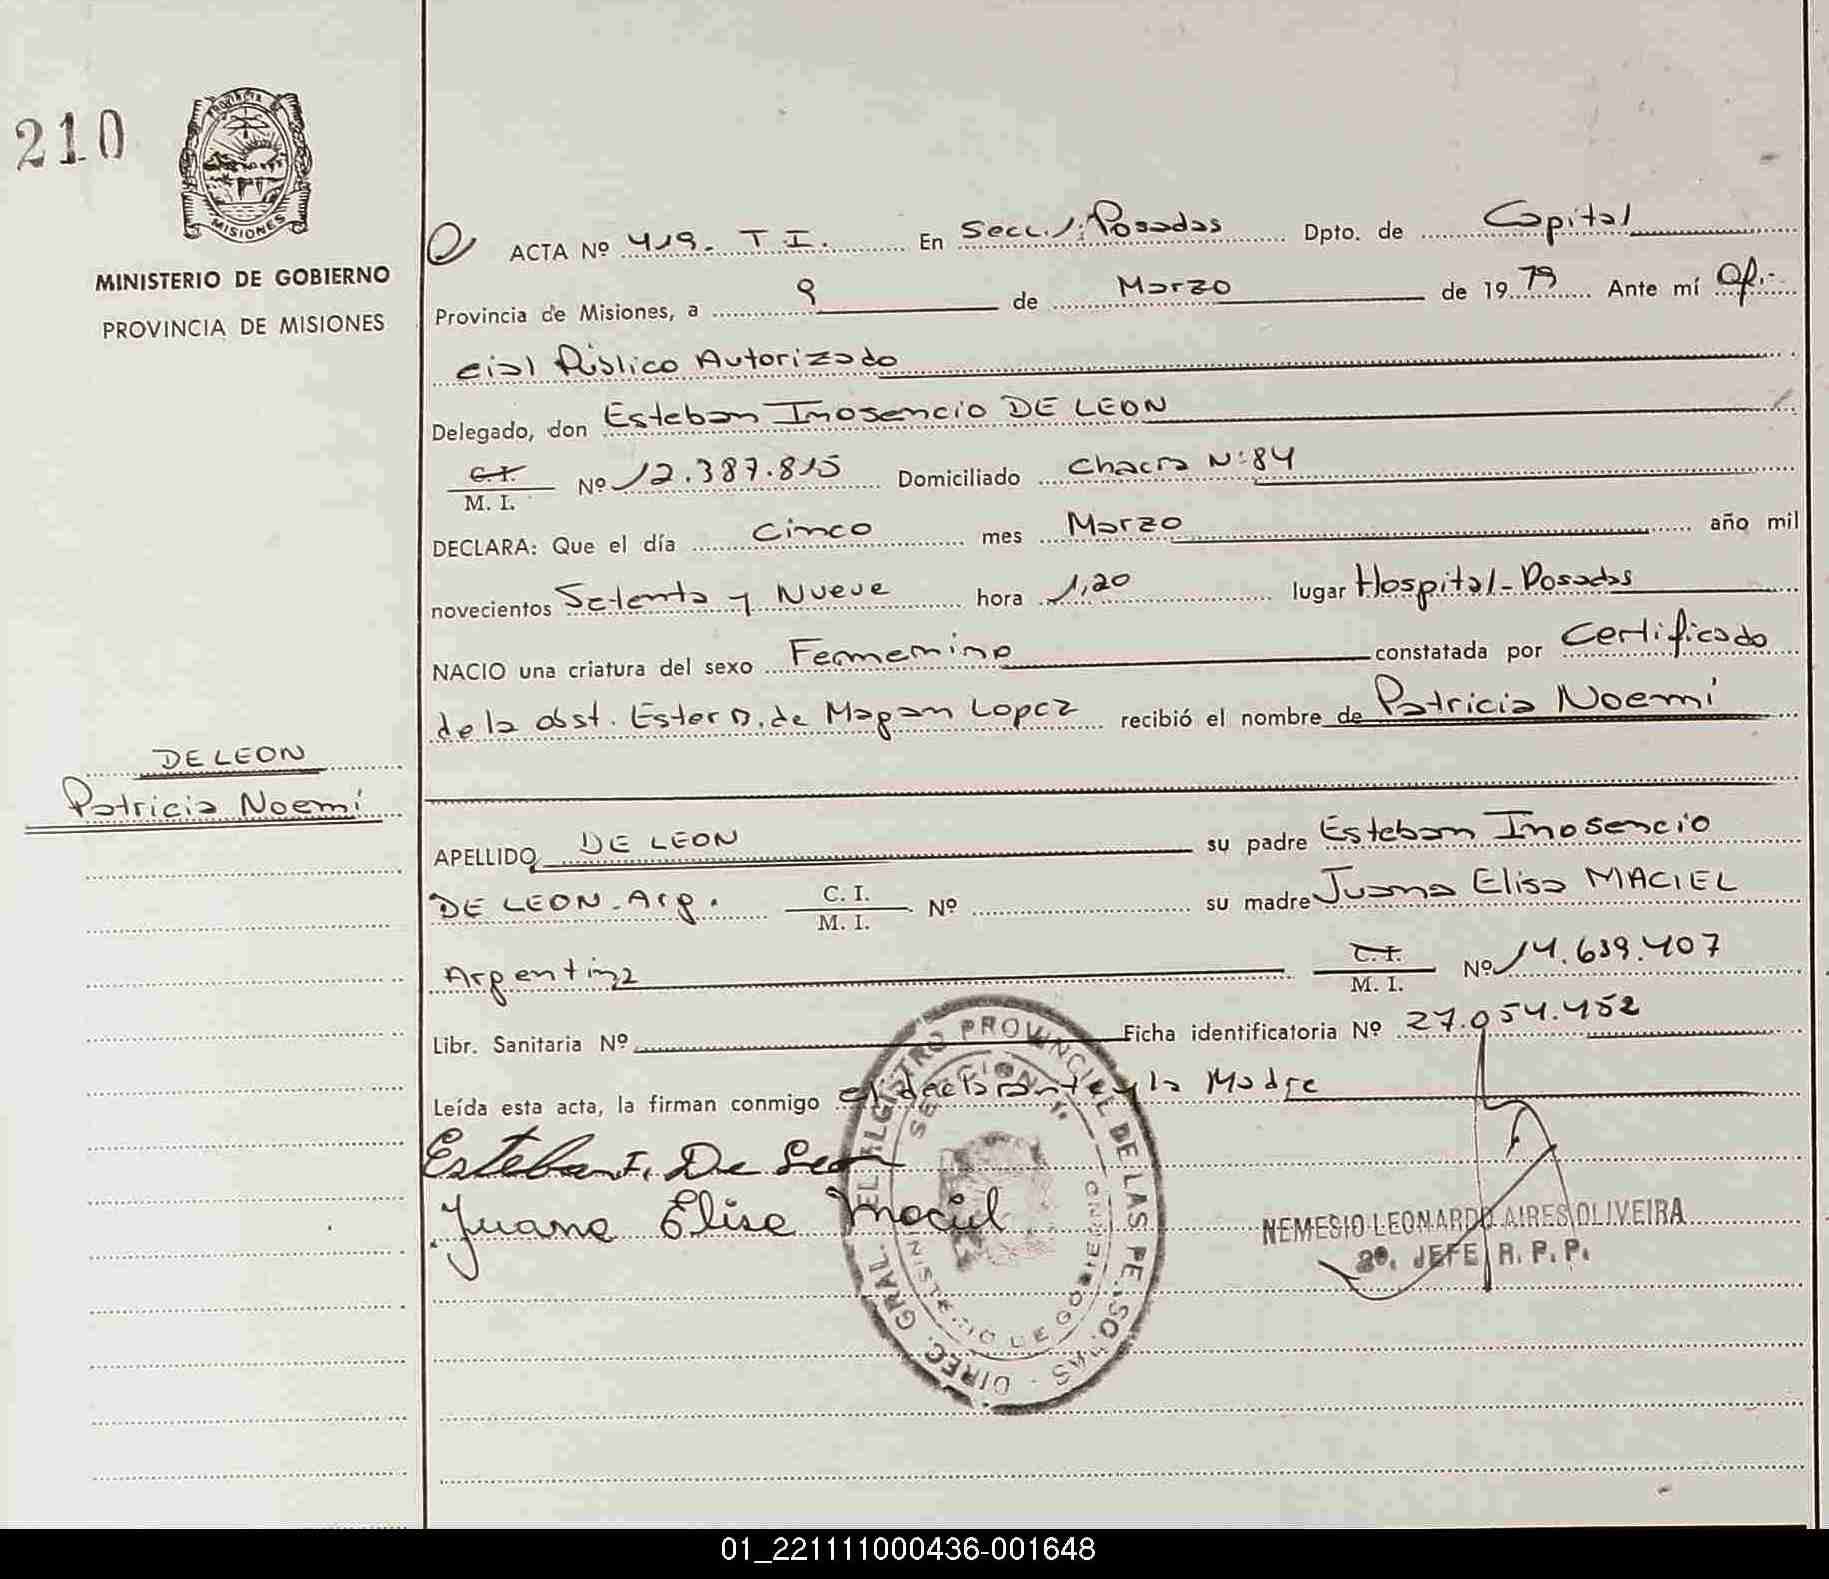 210
PROVINCIA DE
MISIONES
MINISTERIO DE GOBIERNO
PROVINCIA DE MISIONES
DE LEON
Patricia Noemí
ACTA Nº 419. T I. En Secc. 1: Posadas Dpto. de Capital
Provincia de Misiones, a 9 de Marzo de 1979 Ante mí Ofi-
cial Público Autorizado
Delegado, don Esteban Inosencio DE LEON
C.I.
M. I. Nº 12.387.815 Domiciliado Chacra Nº 84
DECLARA: Que el día Cinco mes Marzo año mil
novecientos Setenta y Nueve hora 1,20 lugar Hospital-Posadas
NACIO una criatura del sexo Femenino constatada por Certificado
de la obst. Ester D. de Magan Lopez recibió el nombre de Patricia Noemí
APELLIDO DE LEON su padre Esteban Inosencio
DE LEON. Arg. C. I.
M. I. Nº su madre Juana Elisa MACIEL
Argentina C.I.
M. I. Nº 14.639.407
Libr. Sanitaria Nº Ficha identificatoria Nº 27.054.452
Leída esta acta, la firman conmigo el declarante y la Madre
Esteban I. De Leon
Juana Elisa Maciel
DIREC. GRAL. DEL REGISTRO PROVINCIAL DE LAS PERSONAS
SECCION 1ª
MINISTERIO DE GOBIERNO
NEMESIO LEONARDO AIRES OLIVEIRA
2º. JEFE R. P. P.
01_221111000436-001648